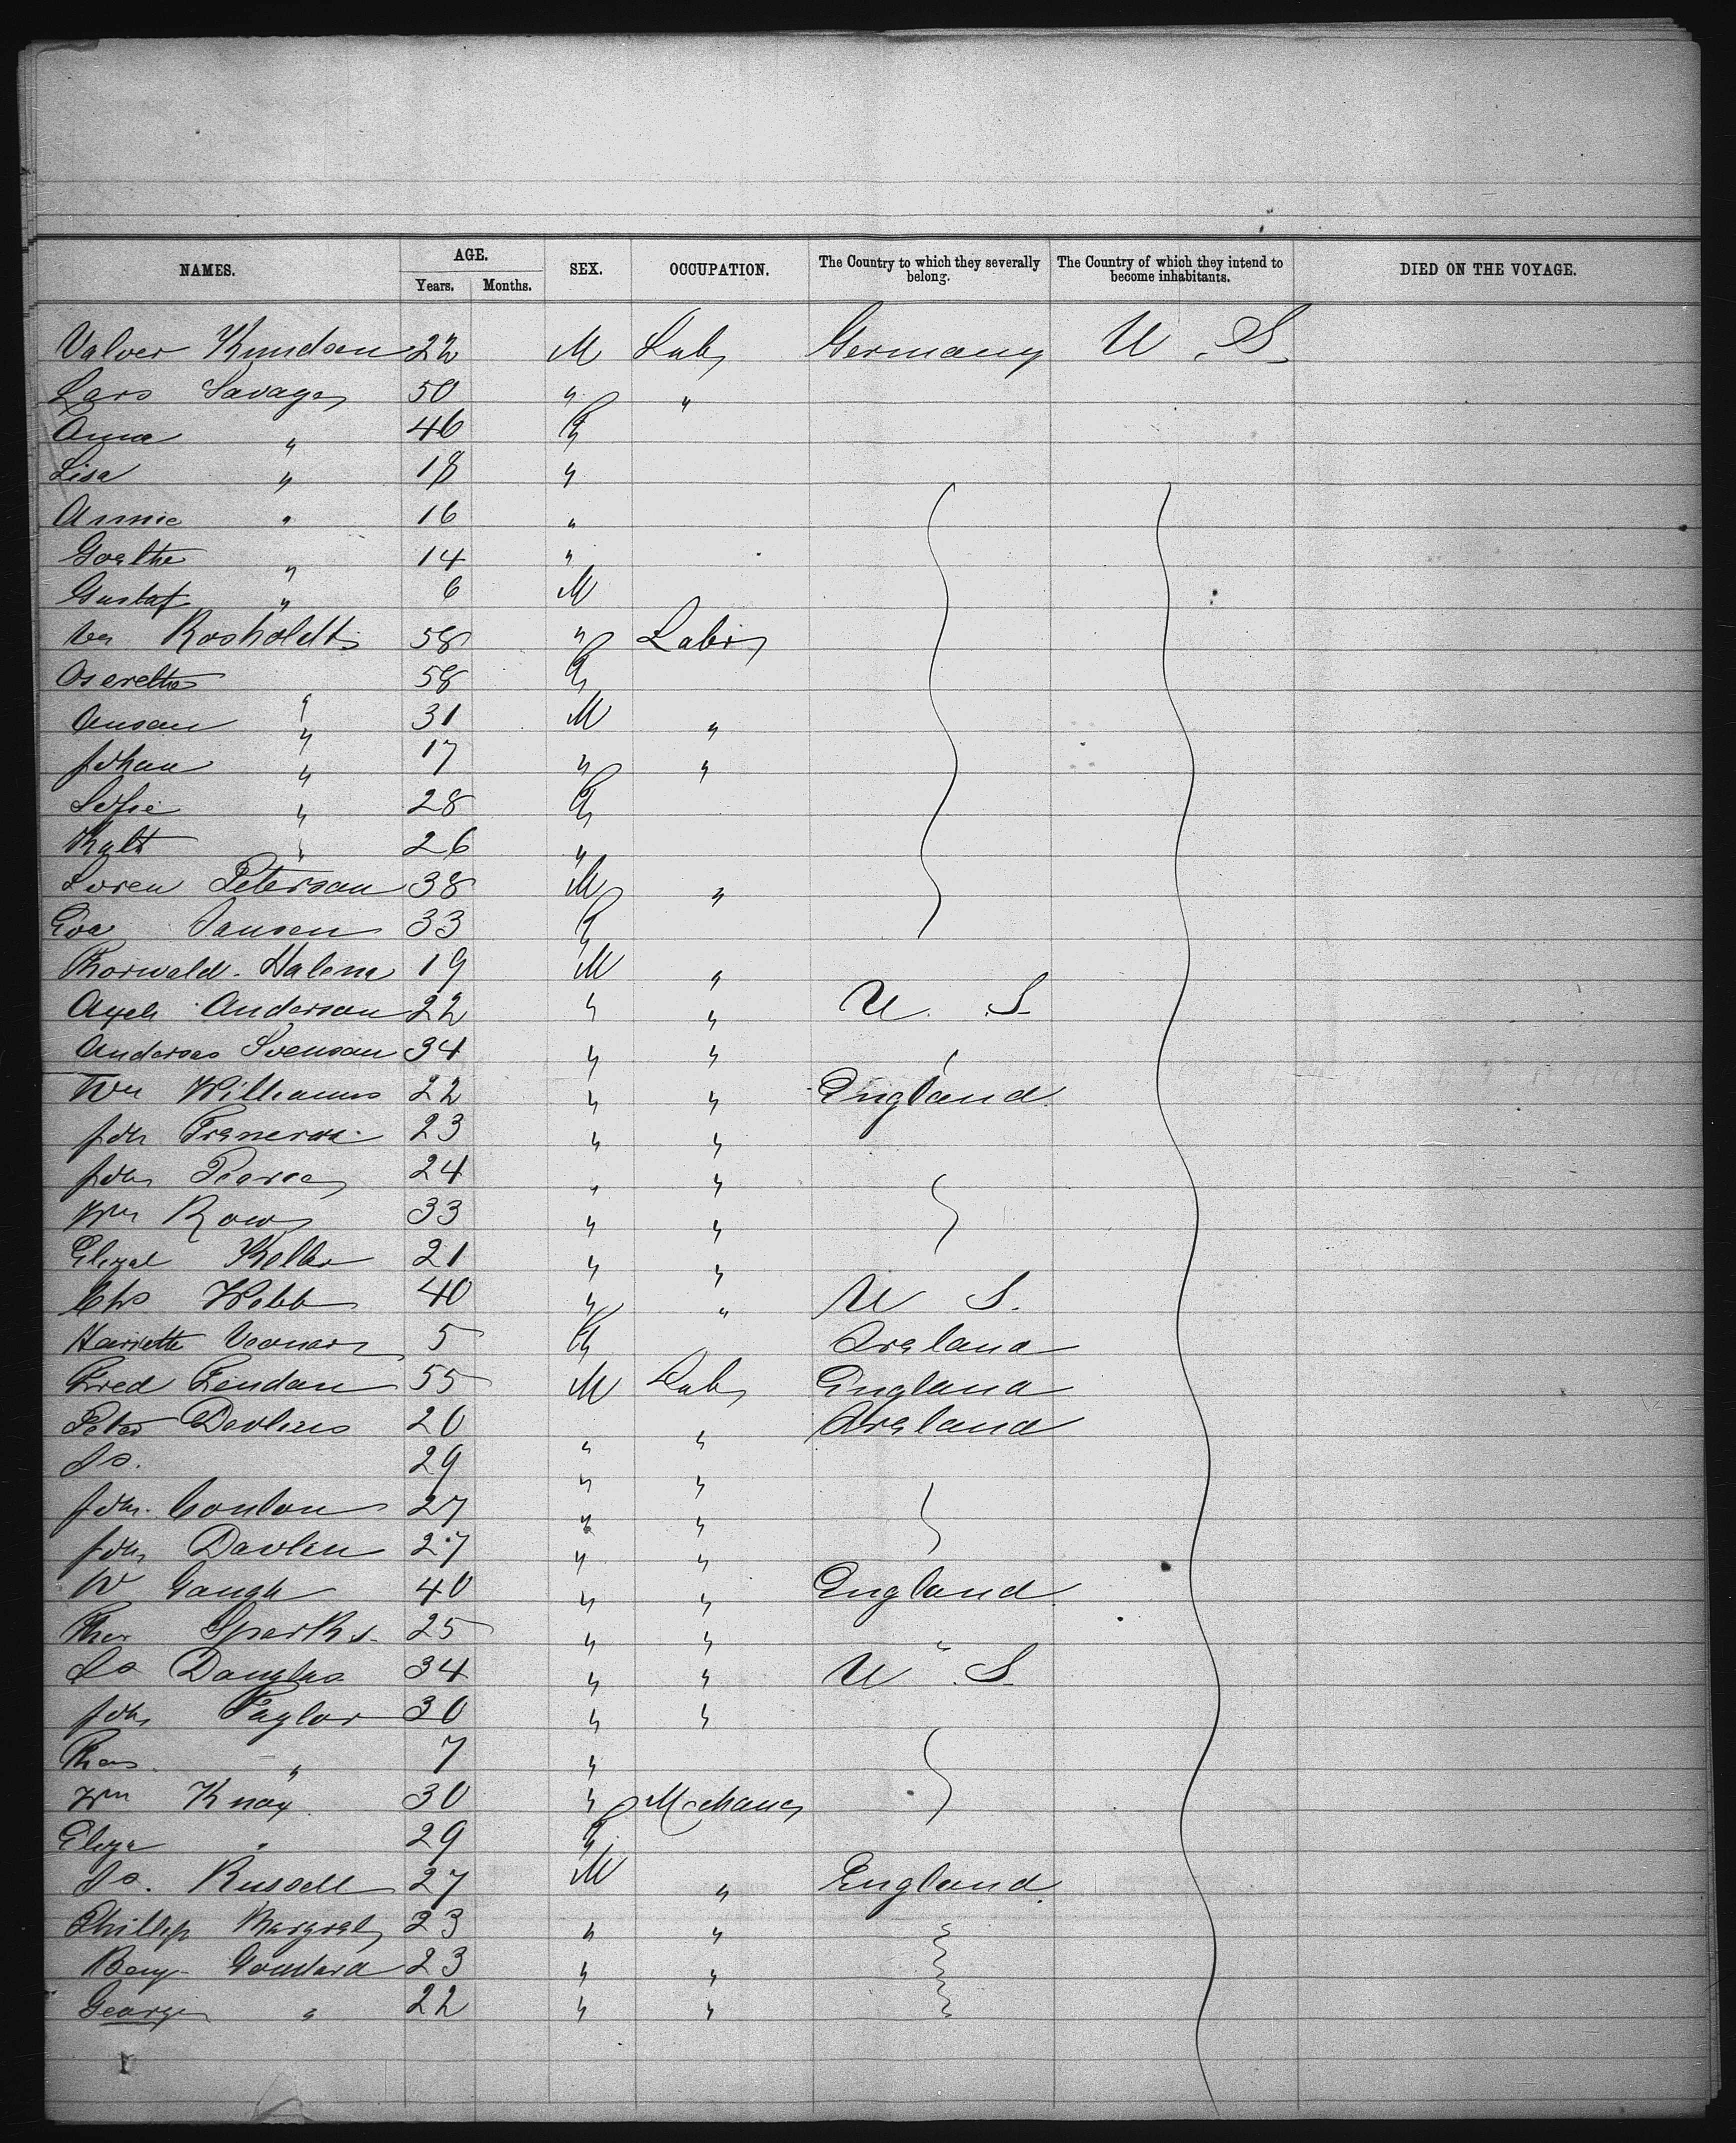 NAMES. AGE. SEX. OCCUPATION. The Country to which they severally belong. The Country of which they intend to become inhabitants. DIED ON THE VOYAGE.
Years. Months.
Valver Knudsen 22 M Lab Germany U.S.
Lars Savage 50 " "
Anna " 46 F
Lisa " 18 "
Annie " 16 "
Goethe " 14 "
Gustaf " 6 M
Rosholdt 58 " Labr
58 F
" 31 M "
Johan " 17 " "
Sofie " 28 F
" 26 "
Soren Peterson 38 M "
Eva Jansen 33 F
Thorwald Halema 19 M "
Axel Anderson 22 " " U.S.
Anderses Svenson 34 " " "
Wm Williams 22 " " England
Joh 23 " "
Joh Pearce 24 " "
Wm Rows 33 " "
21 " "
Chs Webb 40 " " U S.
Harriette 5 F Ireland
Fred Fendan 55 M Lab England
Peter Devlins 20 " " Ireland
Js. 29 " "
Joh. Conlon 27 " "
Joh Davlen 27 " "
W Gaugh 40 " " England
Thos Sparks 25 " " "
Js Douglas 34 " " U S.
Joh Taylor 30 " "
Thos. " 7 "
Wm Knox 30 " Mechanc
Eliza " 29 F
Js. Russell 27 M " England
Phillip Margrat 23 " "
Benj Goudard 23 " "
George " 22 " "